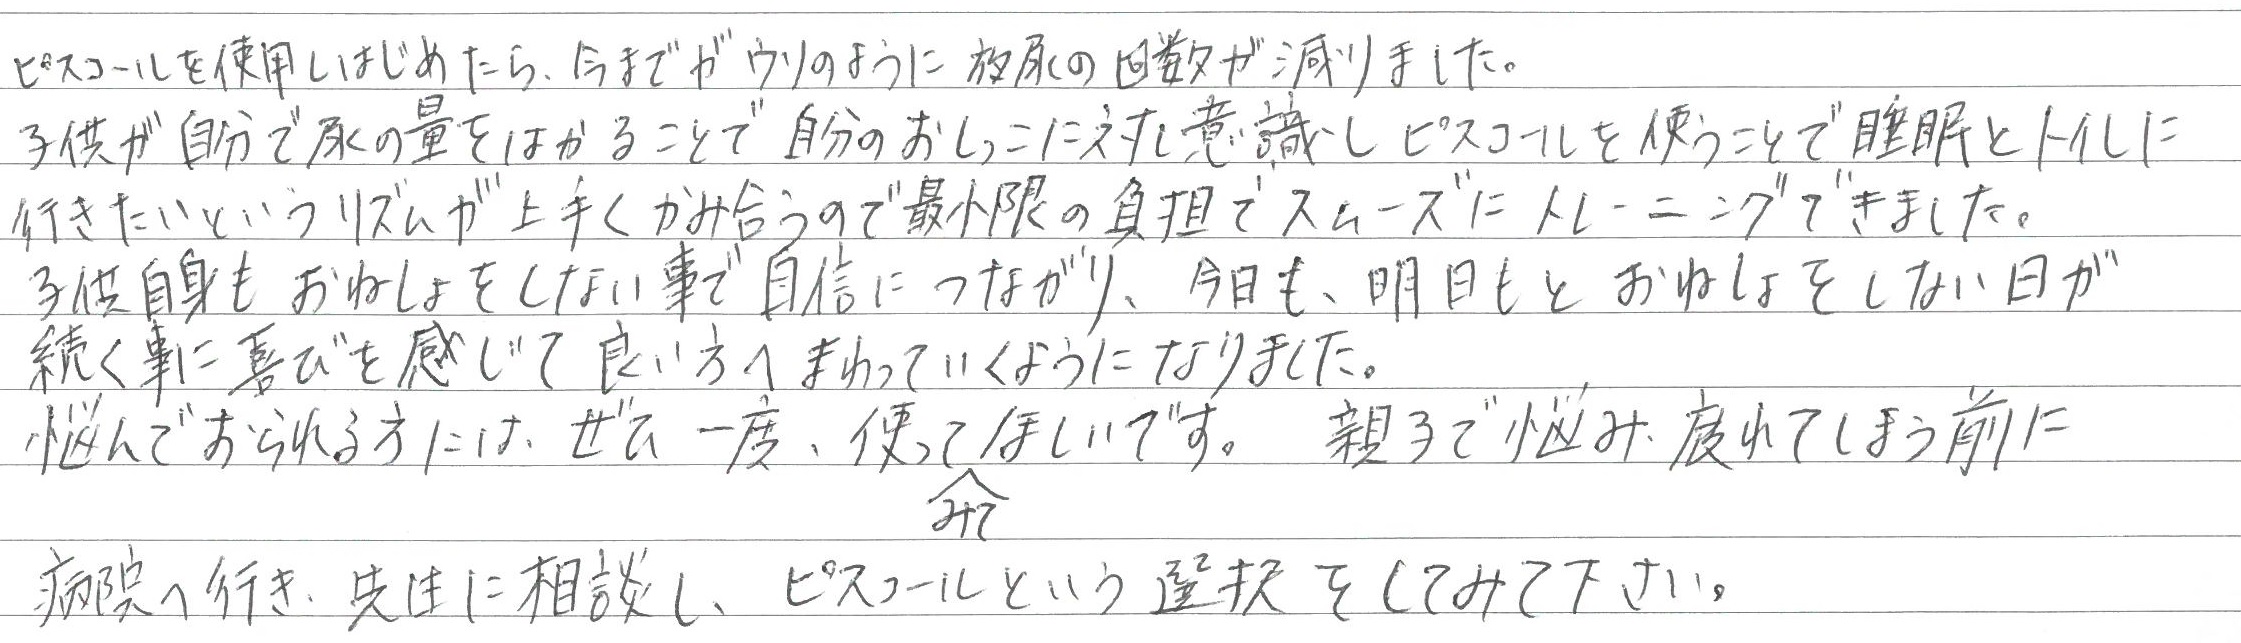 ピスコールを使用しはじめたら、今までがウソのように放尿の回数が減りました。
子供が自分で尿の量をはかることで自分のおしっこに対し意識しピスコールを使うことで睡眠とトイレに
行きたいというリズムが上手くかみ合うので最小限の負担でスムーズにトレーニングできました。
子供自身もおねしょをしない事で自信につながり、今日も、明日もとおねしょをしない日が
続く事に喜びを感じて良い方へまわっていくようになりました。
悩んでおられる方には、ぜひ一度、使ってほしいです。 親子で悩み、疲れてしまう前に
みて
病院へ行き、先生に相談し、ピスコールという選択をしてみて下さい。